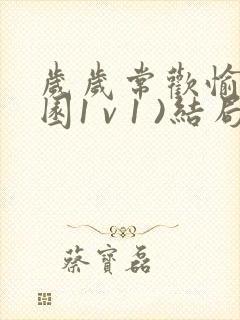 歲歲常歡愉
園1v1)結局
蔡寶磊